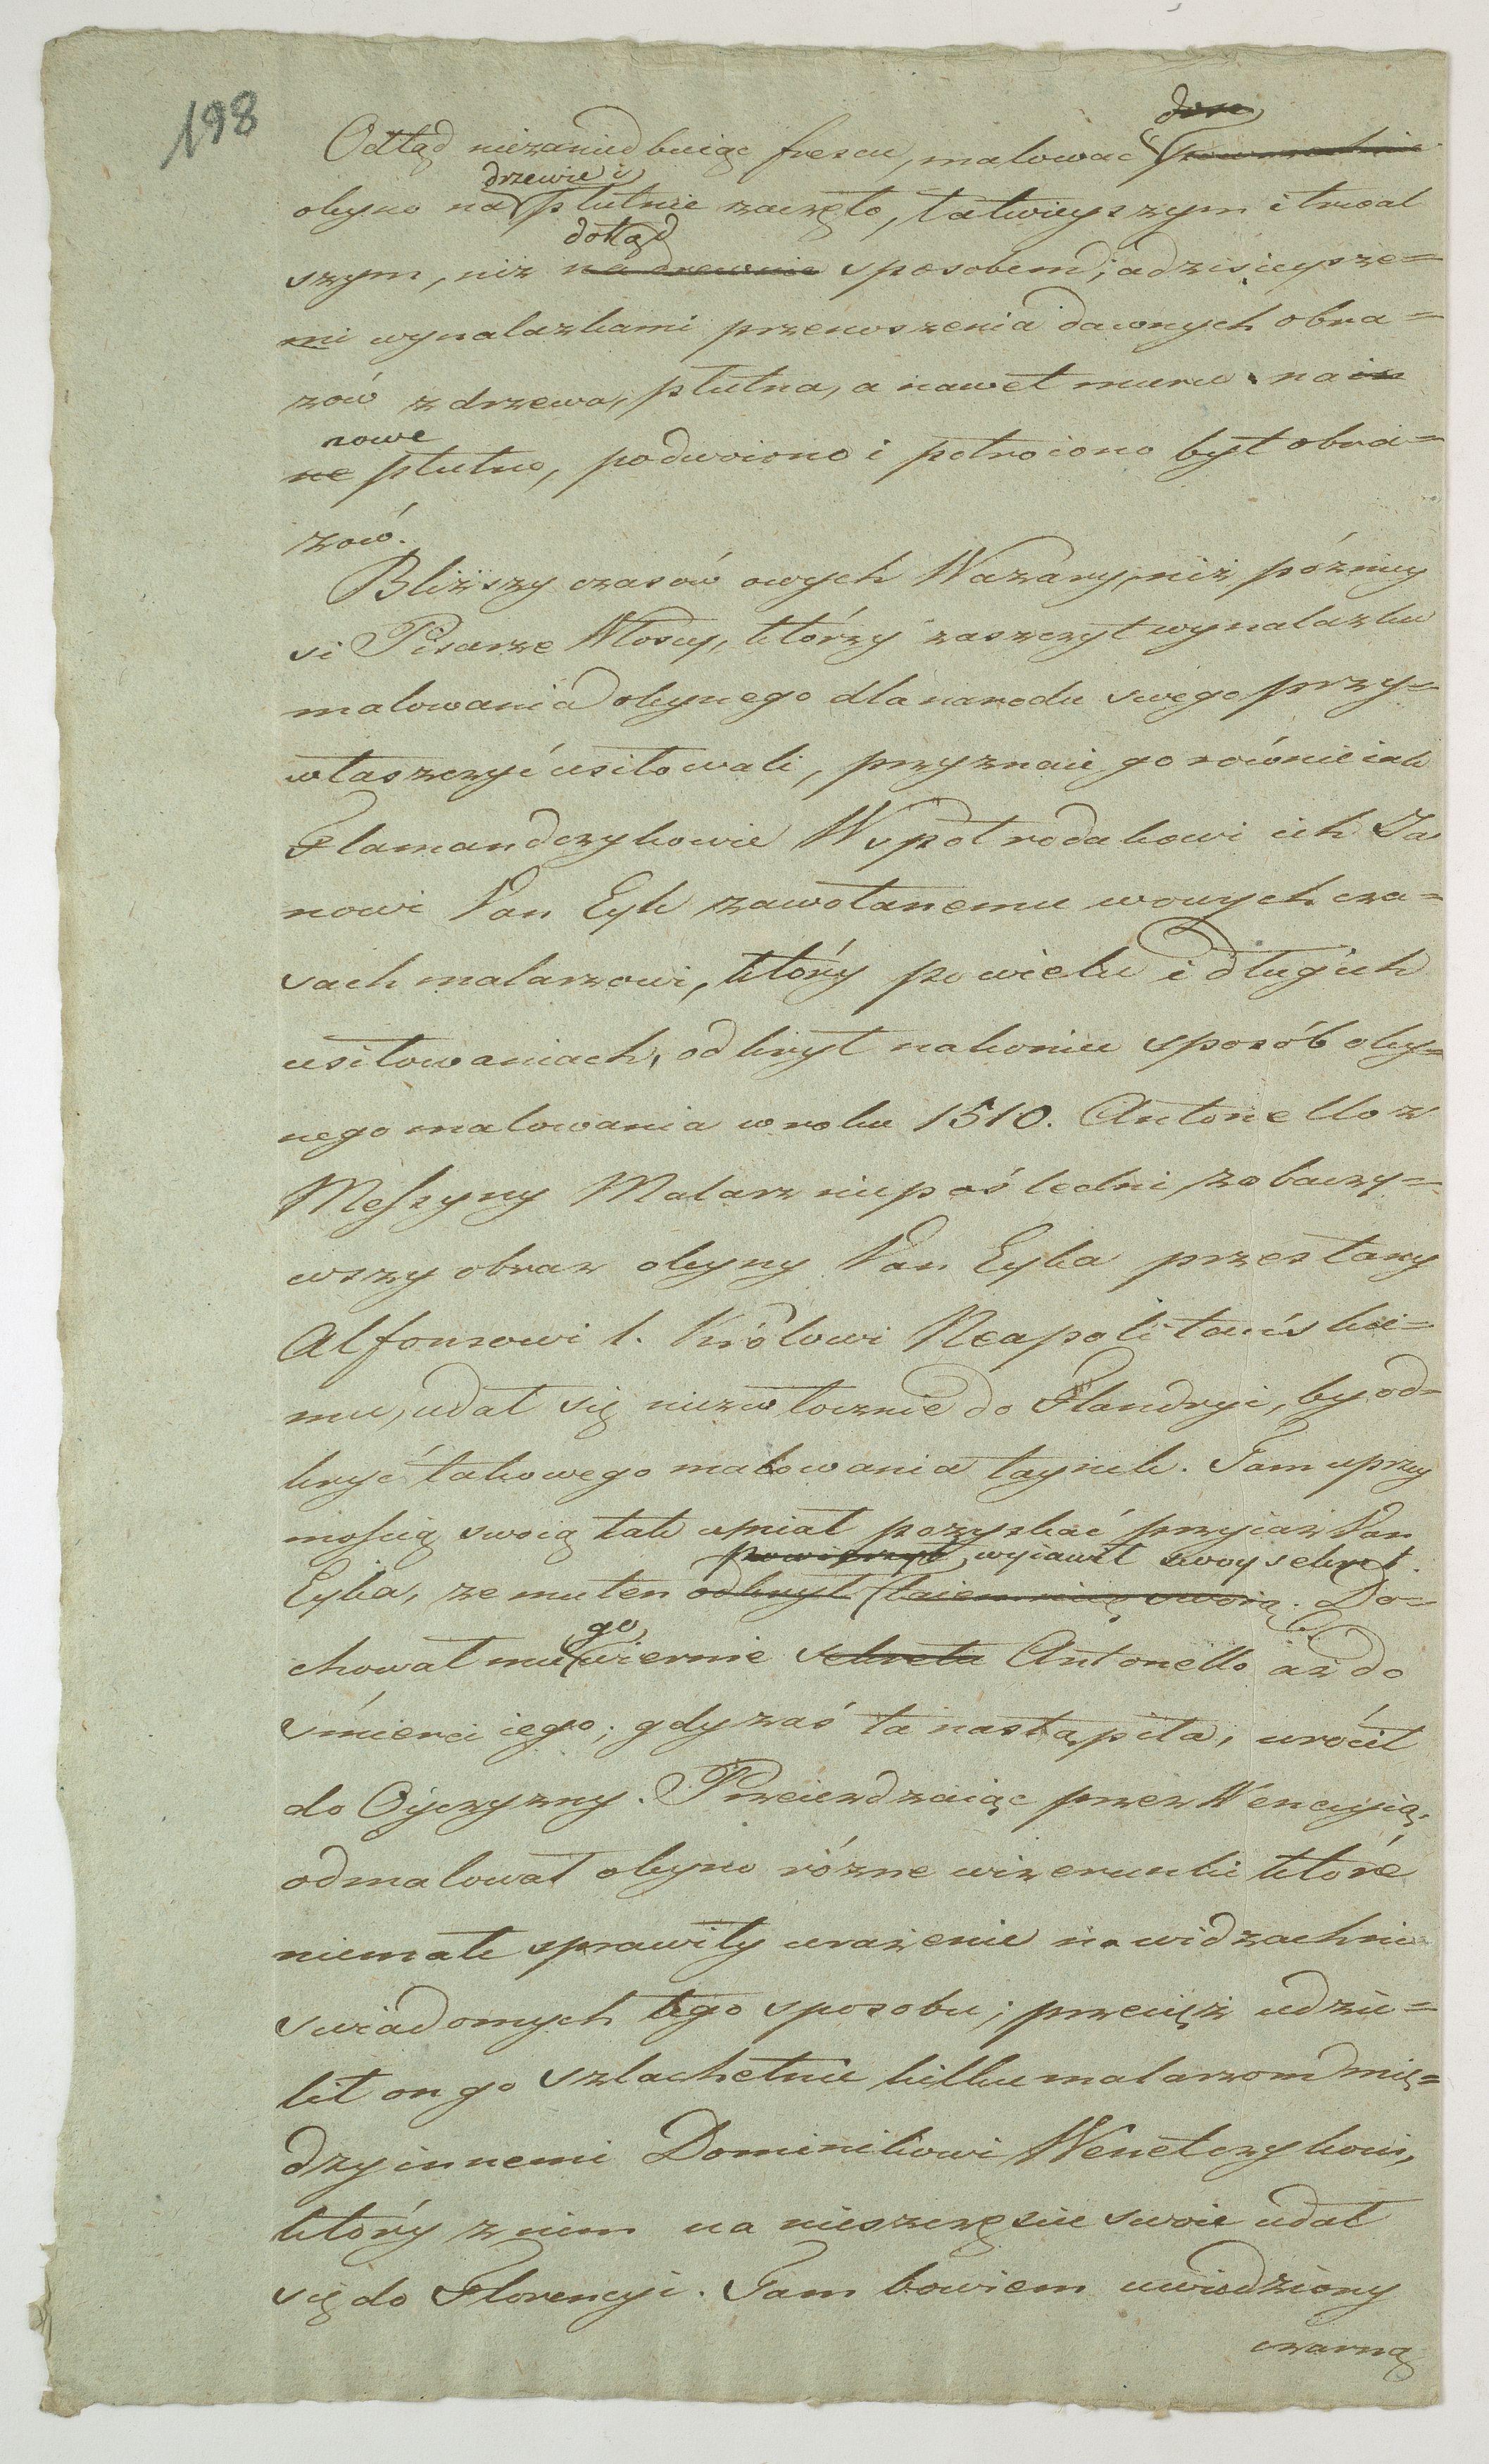 198
Odtąd niezaniedbuiąc frescu, malować powszechnie
drzewie i
oleyno na płutnie zaczęto, łatwieyszym i trwal
dotąd
szym, niż na drewnie sposobem; a dzisieysze=
mi wynalazkami przenoszenia dawnych obra=
zów z drzewa, płutna, a nawet muru na in
nowe
ne płutno, podwoiono i potroiono byt obra=
zów.
Bliższy czasów owych Wazary, niż późniey
si Pisarze Włoscy, którzy zaszczyt wynalazku
malowania oleynego dla narodu swego przy=
właszczyć usiłowali, przyznaie go równie iak
Flamandczykowie Wspołrodakowi ich Ja
nowi Van Eyk zawołanemu w owych cza=
sach malarzowi, który po wielu i długich
usiłowaniach, odkrył nakoniec sposób oley=
nego malowania w roku 1510. Antonello z
Messyny Malarz niepośledni zobaczy=
wszy obraz oleyny Van Eyka przesłany
Alfonsowi 1. Królowi Neapolitańskie=
mu, udał się niezwłocznie do Flandryi, by od=
kryć takowego malowania taynik. Tam uprzey
mością swoią tak umiał pozyskać przyiaźń Van
powierzył, wyiawił swoy sekret.
Eyka, że mu ten odkrył taiemnicę swoią. Do=
go
chował mu wiernie sekretu Antonello aż do
śmierci iego; gdy zaś ta nastąpiła, wrócił
do Oyczyzny. Przeieżdżaiąc przez Wenecyią,
odmalował oleyno różne wizerunki które
niemałe sprawiły wrażenie na widzach nie
świadomych tego sposobu; przecięż udzie=
lił on go szlachetnie kilku malarzom mię=
dzy innemi Dominikowi Wenetczykowi,
który z nim na nieszczęście swoie udał
się do Florencyi. Tam bowiem uwiedziony
czarną